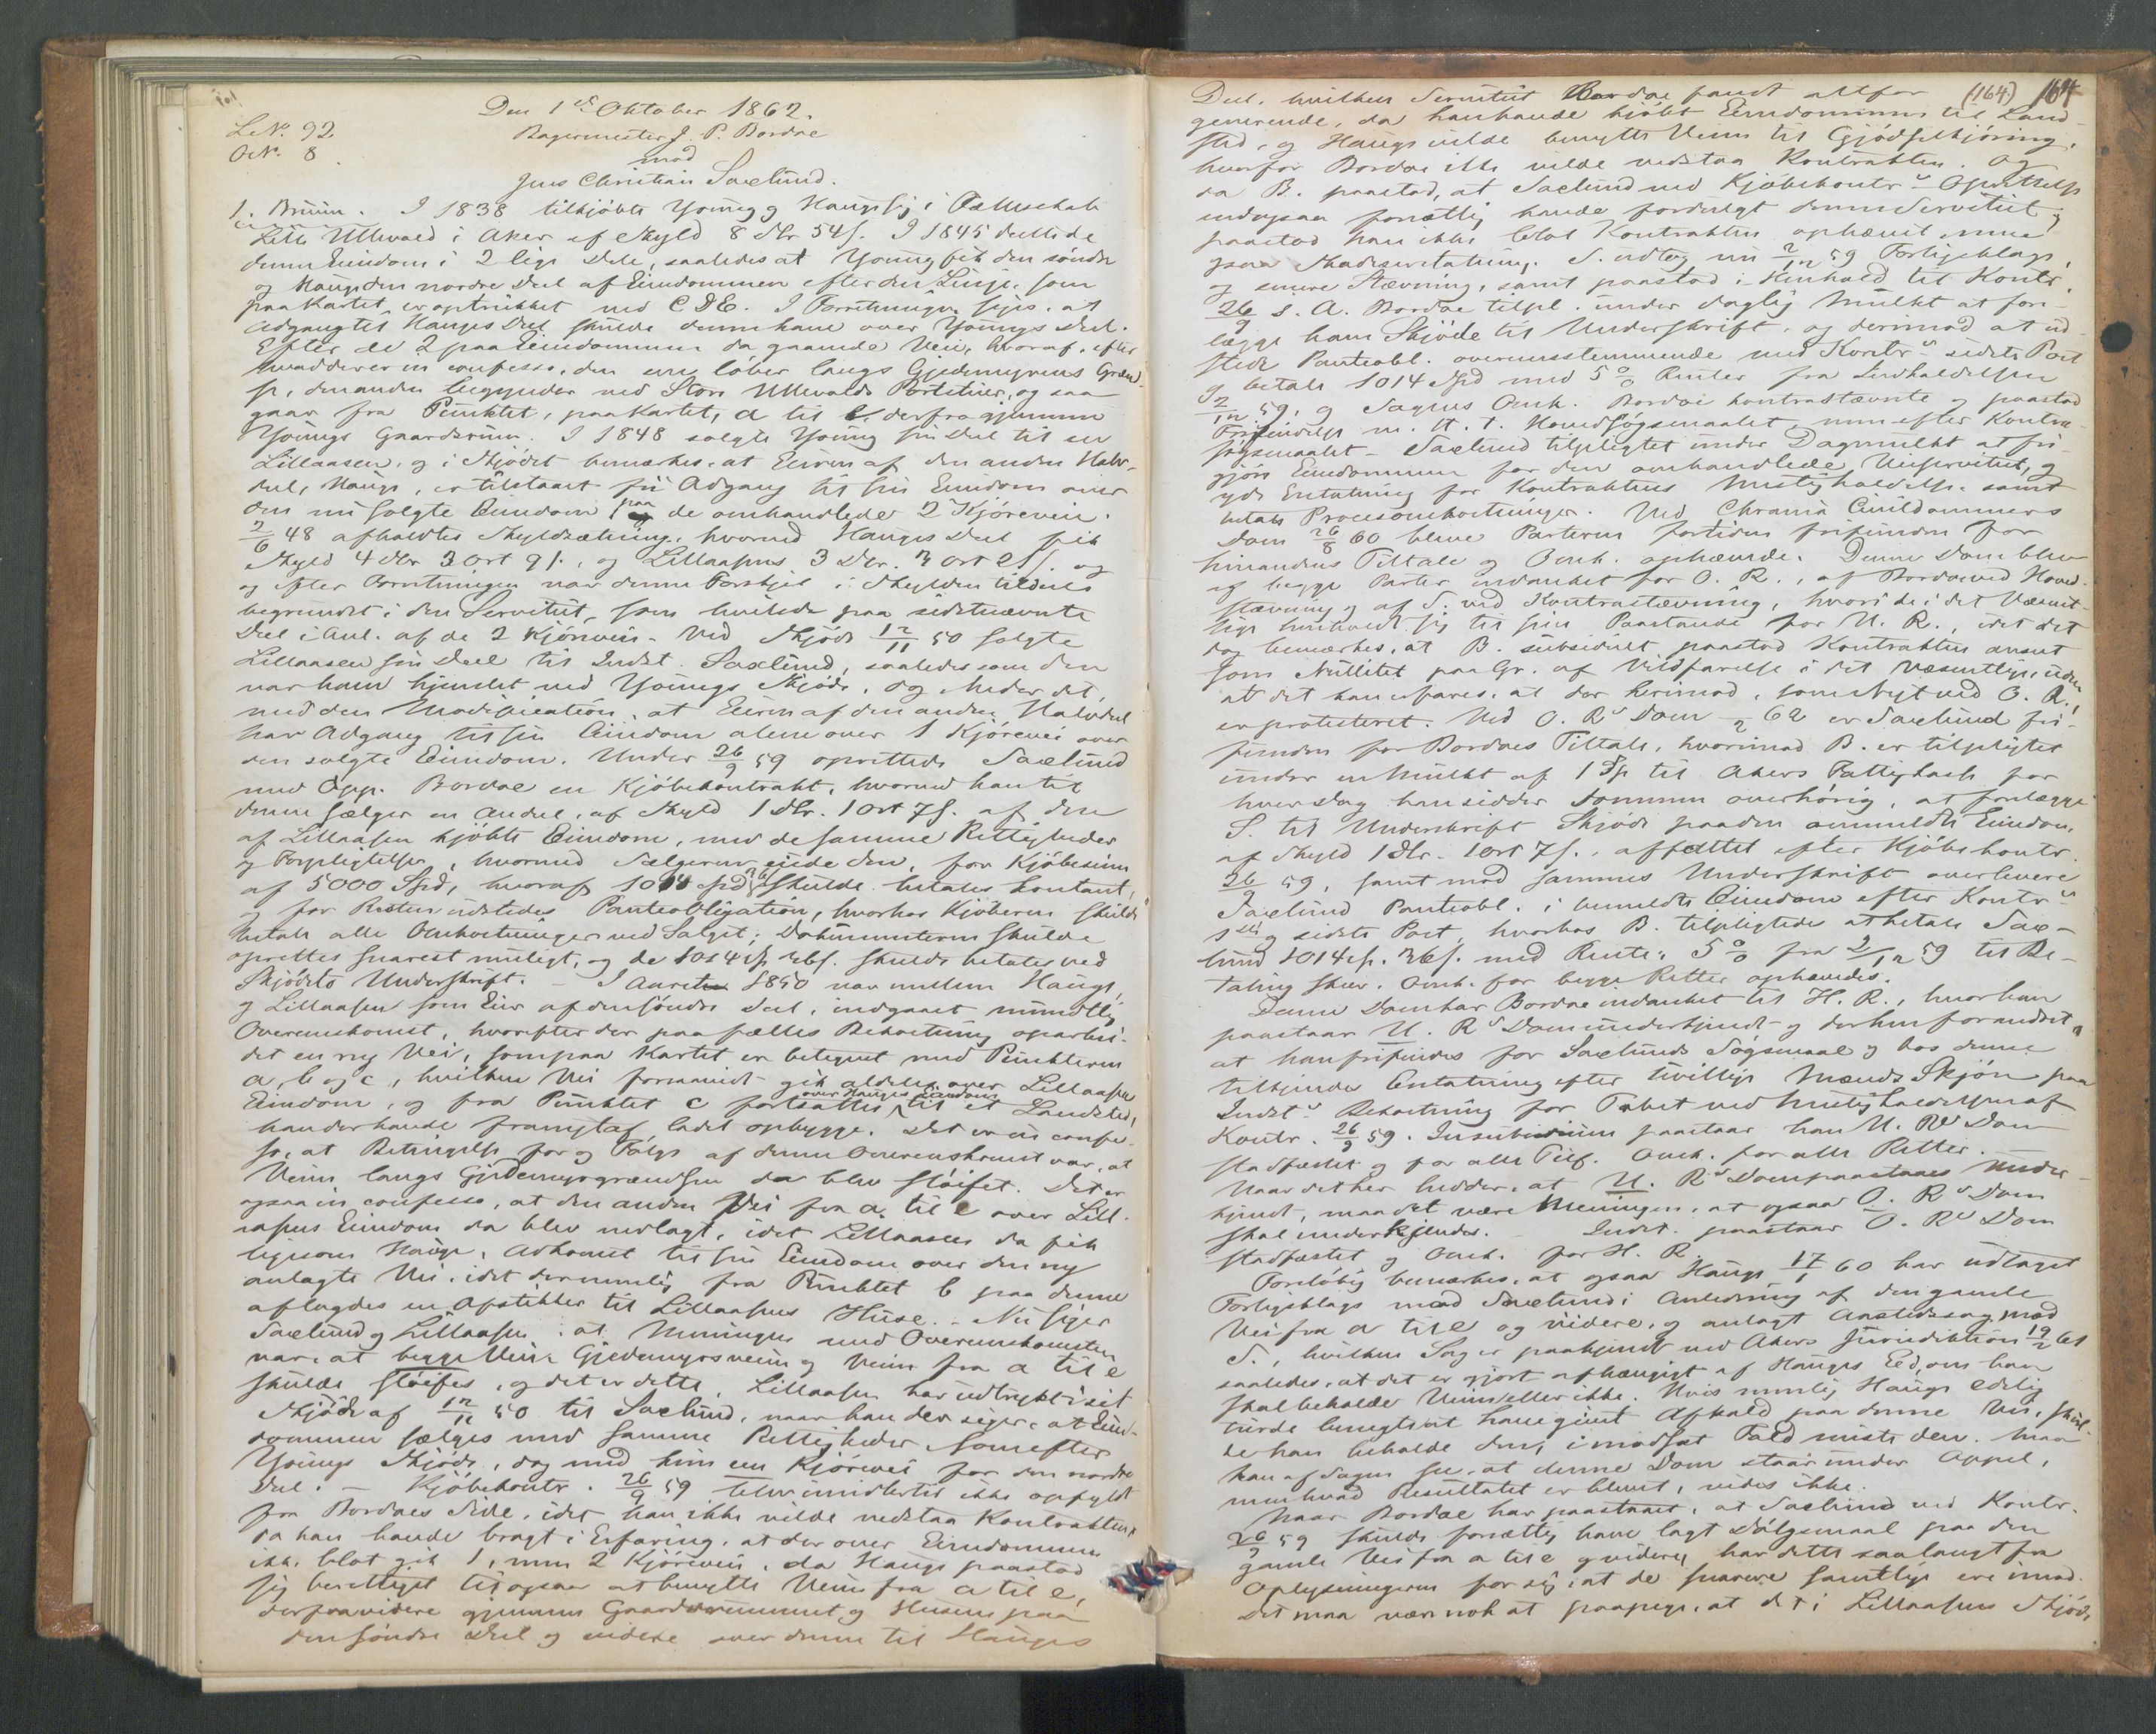 Den 1ste Oktober 1862.
L.No. 92
O.No. 8.
Bagermester J. P. Bordoe
mod
Jens Christian Saxlund.
1. Bruun. I 1838 tilkjøbte Young og Hauge sig i Fællesskab
Lille Ullevold i Aker af Skyld 8 Dlr 54 s. I 1845 deeltede
denne Eiendom i 2 lige Dele, saaledes at Young fik den søndre
og Hauge den nordre Deel af Eiendommen efter den Linje, som
paa Kartet er optrukket med C D E. I Forretningen siges, at
Adgang til Hauges Deel skulde denne have over Youngs Deel.
Efter de 2 paa Eiendommen da gaaende Veie, hvoraf, efter
hvad der er in confesso, den ene løber langs Gjedemyrens Grænd-
se, den anden begynder ved Store Ullevolds Portstuer, og saa
gaar fra Punktet, paa Kartet, a til e, derfra gjennem
Youngs Gaardsrum. I 1848 solgte Young sin Deel til en
Lillaasen, og i Skjødet bemærkes, at Eieren af den anden Halv-
deel, Hauge, er tilstaaet fri Adgang til sin Eiendom over
den nu solgte Eiendom paa de omhandlede 2 Kjøreveie.
2/6 48 afholdtes Skyldsætning, hvorved Hauges Deel fik
Skyld 4 Dlr 3 Ort 9 s., og Lillaasens 3 Dlr. 3 Ort 21 s. og
og efter Forretningen var denne Forskjel i Skylden tildeels
begrundet i den Servitut, som hvilede paa sidstnævnte
Deel i Anl. af de 2 Kjøreveie. Ved Skjøde 12/11 50 solgte
Lillaasen sin Deel til Indst. Saxlund, saaledes som den
var ham hjemlet ved Youngs Skjøde, og, heder det,
med den Modification, at Eieren af den anden Halvdeel
har Adgang til sin Eiendom alene over 1 Kjørevei over
den solgte Eiendom. Under 26/9 59 oprettede Saxlund
med App. Bordoe en Kjøbekontrakt, hvorved han til
denne sælger en Andeel, af Skyld 1 Dlr. 1 Ort 7 s. af den
af Lillaasen kjøbte Eiendom, med de samme Rettigheder
og Forpligtelser, hvormed Sælgeren eiede den, for Kjøbesum
af 5000 Spd, hvoraf 1014 Spd 26 s skulde betales kontant,
og for Resten udstedes Panteobligation, hvorhos Kjøberen skulde
betale alle Omkostninger ved Salget; Dokumenterne skulde
oprettes snarest muligt, og de 1014 Sp 26 s. skulde betales ved
Skjødets Underskrift. – I Aaret 1850 var mellem Hauge,
og Lillaasen som Eier af den søndre Deel, indgaaet mundtlig
Overenskomst, hvorefter der paa fælles Bekostning oparbei-
det en ny Vei, som paa Kartet er betegnet med Punkterne
a, b og c, hvilken Vei formeentlig gik aldeles over Lillaasens
Eiendom, og fra Punktet c fortsattes over Hauges Eiendom til et Landsted,
han der havde ladet opbygge. Det er in confes-
so, at Betingelse for og Følge af denne Overenskomst var, at
Veien langs Gjedemyrsgrændsen da blev sløifet. Det er
ogsaa in confesso, at den anden Vei fra a til e over Lill-
aasens Eiendom da blev nedlagt, idet Lillaasen da fik
ligesom Hauge, Adkomst til sin Eiendom over den ny
anlagte Vei, idet der nemlig fra Punktet b paa denne
aflagdes en Afstikker til Lillaasens Huse. – Nu siger
Saxlund og Lillaasen, at Meningen med Overenskomsten
var, at begge Veie, Gjedemyrsveien og Veien fra a til e
skulde sløifes, og det er dette, Lillaasen har udtrykt i sit
Skjøde af 12/11 50 til Saxlund, naar han der siger, at Eien-
dommen sælges med samme Rettigheder som efter
Youngs Skjøde, dog med kun een Kjørevei for den nordre
Deel. – Kjøbekontr. 26/9 59 blev imidlertid ikke opfyldt
fra Bordoes Side, idet han ikke vilde vedstaa Kontrakten,
da han havde bragt i Erfaring, at der over Eiendommen
ikke blot gik 1, men 2 Kjøreveie, da Hauge paastod
sig berettiget til ogsaa at benytte Veien fra a til e,
derfra videre gjennem Gaardsrummet og Husene paa
den søndre Deel og videre over denne til Hauges
(164) 164
Deel, hvilken Servitut Bordoe fandt altfor
generende, da han havde kjøbt Eiendommen til Land-
sted, og Hauge vilde benytte Veien til Gjødselkjøring,
hvorfor Bordoe ikke vilde vedstaa Kontrakten. Og
da B. paastod, at Saxlund ved Kjøbekontr.s Oprettelse
endogsaa forsætlig havde fordulgt denne Servitut,
paastod han ikke blot Kontrakten ophævet, men
ogsaa Skadeserstatning. S. udtog nu 2/12 59 Forligsklage,
og senere Stævning, samt paastod i Henhold til Kontr.
26/9 s. A. Bordoe tilpl. under daglig Mulkt at fore-
lægge ham Skjøde til Underskrift, og derimod at ud-
stede Panteobl. overensstemmende med Kontr.s sidste Post
og betale 1014 Spd med 5 % Renter fra Indkaldelsen
2/12 59, og Sagens Omk. Bordoe kontrastævnte og paastod
Frifindelse m. H. t. Hovedsøgsmaalet, men efter Kontra-
søgsmaalet – Saxlund tilpligtet under Dagmulkt at fri-
gjøre Eiendommen for den omhandlede Veiservitut, og
yde Erstatning for Kontraktens Misligholdelse, samt
betale Procesomkostninger. Ved Chrania Civildommers
Dom 26/8 60 bleve Parterne fortiden frifundne for
hinandens Tiltale og Omk. ophævede. Denne Dom blev
af begge Parter indanket for O. R., af Bordoe ved Hoved-
stævning og af S. ved Kontrastævning, hvor de i det Væsent-
lige henholdt sig til sine Paastande for U. R., idet det
dog bemærkes, at B. subsidiært paastod Kontrakten anseet
som Nullitet paa Gr. af Vildfarelse i det Væsentlige, uden
at det kan erfares, at der herimod, som Nyt ved O. R.,
er protesteret. Ved O. Rs Dom /2 62 er Saxlund fri-
funden for Bordoes Tiltale, hvorimod B. er tilpligtet
under en Mulkt af 1 Sp til Akers Fattigkasse for
hver Dag han sidder Dommen overhørig, at forelægge
S. til Underskrift Skjøde paa den ommeldte Eiendom,
af Skyld 1 Dlr. 1 Ort 7 s., affattet efter Kjøbekontr.
26/9 59, samt mod sammes Underskrift overlevere
Saxlund Panteobl. i bemeldte Eiendom efter Kontr.s
1ste og sidste Post, hvorhos B. tilpligtedes at betale Sax-
lund 1014 Sp. 26 s. med Renter 5 % fra 2/12 59 til Be-
taling skeer. Omk. for begge Retter ophævedes.
Denne Dom har Bordoe indanket til H. R., hvor han
paastaar U. Rs Dom underkjendt og derhen forandret,
at han frifindes for Saxlunds Søgsmaal og hos denne
tilkjendes Erstatning efter uvillige Mænds Skjøn paa
Indst.s Bekostning for Tabet ved Misligholdelsen af
Kontr. 26/9 59. In subsidium paastaar han U. Rs Dom
stadfæstet og for alle Tilf. Omk. for alle Retter. –
Naar det her hedder, at U. Rs Dom paastaaes under-
kjendt, maa det være Meningen, at ogsaa O. Rs Dom
skal underkjendes. – Indst. paastaar O. Rs Dom
stadfæstet og Omk. for H. R.
Foreløbig bemærkes, at ogsaa Hauge 17/1 60 har udtaget
Forligsklage mod Saxlund i Anledning af den gamle
Vei fra a til e og videre, og anlagt Aastedssag mod
S., hvilken Sag er paakjendt ved Akers Jurisdiktion 19/2 61
saaledes, at det er gjort afhængigt af Hauges Eed, om han
skal beholde Veien eller ikke. Hvis nemlig Hauge edelig
turde benegte at have givet Afkald paa denne Vei, skul-
de han beholde den, i modsat Fald miste den. Maa
kan af Sagen see, at denne Dom staar under Appel,
men hvad Resultatet er blevet, vides ikke.
Naar Bordoe har paastaaet, at Saxlund ved Kontr.
26/9 59 skulde forsætlig have lagt Dølgsmaal paa den
gamle Vei fra a til e og videre, har dette saa langt fra
Oplysningerne for sig, at de snarere samtlige ere imod.
Det maa være nok at paapege, at det i Lillaasens Skjøde